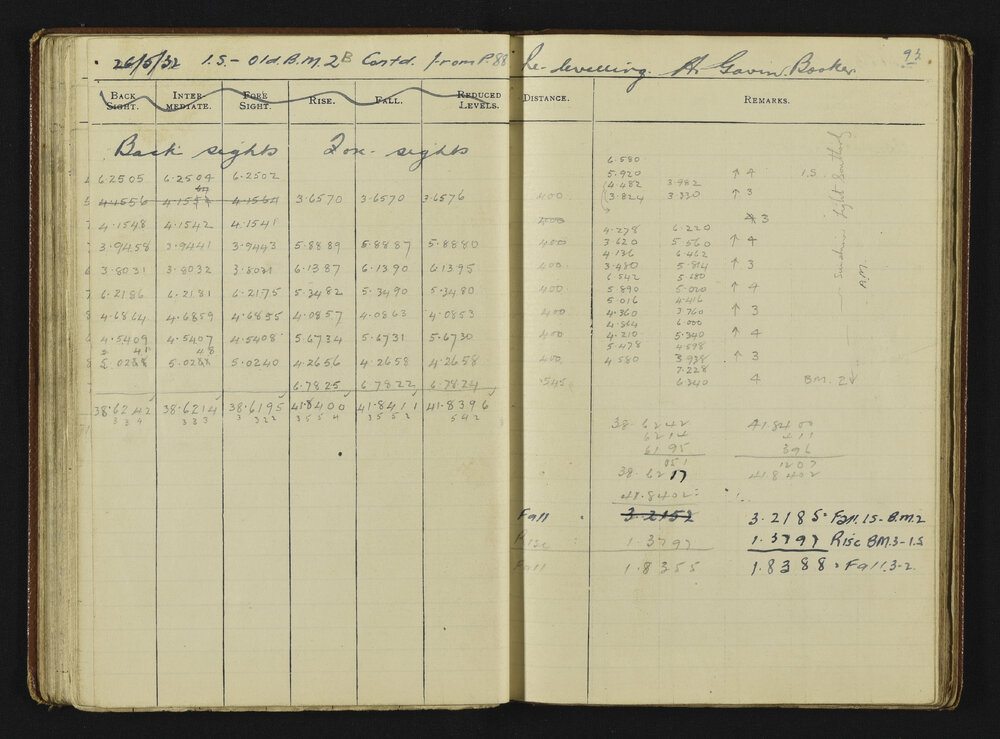 26/5/32 I.S. - Old. B.M. 2B Contd. from P. 88 Re-levelling. A. Gavin Booker 93
BACK SIGHT. INTER MEDIATE. FORE SIGHT. RISE. FALL. REDUCED LEVELS. DISTANCE. REMARKS.
Back sights Fore-sights
6.580
6.2505 6.2504 6.2502 5.920 ↑ 4 I.S.
4.482 3.982
4.1556 4.1564 3.6570 3.6570 3.6576 400 3.824 3.330 ↑ 3
4.1548 4.1542 4.1541 400 3
4.278 6.220
3.9458 3.9441 3.9443 5.8889 5.8887 5.8880 400 3.620 5.560 ↑ 4
4.136 6.462
3.8031 3.8032 3.8031 6.1387 6.1390 6.1395 400 3.480 5.814 ↑ 3
6.542 5.680
6.2186 6.2181 6.2175 5.3482 5.3490 5.3480 400 5.890 5.020 ↑ 4
5.016 4.416
4.6864 4.6859 4.6855 4.0857 4.0863 4.0853 400 4.360 3.760 ↑ 3
4.864 6.000
4.5409 4.5407 4.5408 5.6734 5.6731 5.6730 400 4.210 5.340 ↑ 4
41 48 5.478 4.598
5.0240 4.2656 4.2658 4.2658 400 4.580 3.938 ↑ 3
7.228
6.7825 6.7822 6.7824 .545 6.340 4 B.M. 2
38.6242 38.6214 38.6195 41.8400 41.8411 41.8396
3 3 4 3 3 3 3 3 2 2 3 5 5 4 3 5 5 2 5 4 2
38.6242 41 8400
6214 411
6195 396
651 1207
38.6217 41 8402
41.8402
Fall 3.2152 3.2185 Fall. I.S - B.M. 2
Rise 1.3797 1.3797 Rise BM.3 - I.S
Fall 1.8355 1.8388 Fall 3-2.